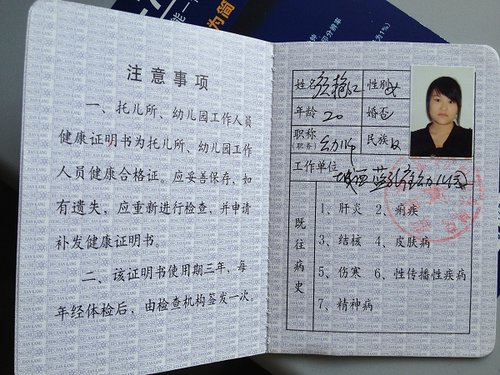 注意事项
一、托儿所、幼儿园工作人员
健康证明书为托儿所、幼儿园工作
人员健康合格证。应妥善保存，如
有遗失，应重新进行检查，并申请
补发健康证明书。
二、该证明书使用期三年，每
年经体检后，由检查机构签发一次。
姓名 性别 女
年龄 20 婚否
职称
(职务) 幼师 民族 汉
工作单位
既往病史
1、肝炎 2、痢疾
3、结核 4、皮肤病
5、伤寒 6、性传播性疾病
7、精神病
为简